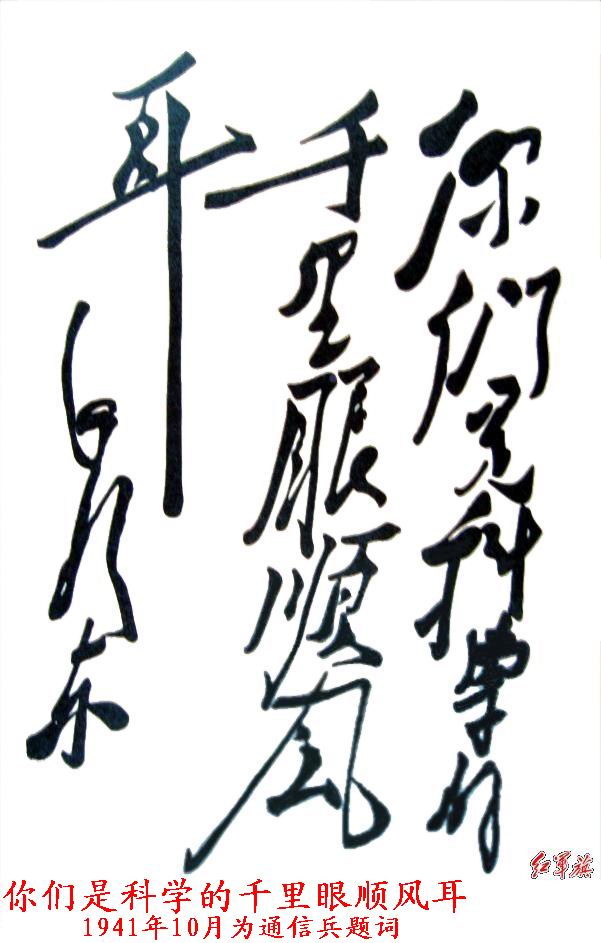 你们是科学的
千里眼顺风
耳
毛泽东
红军旗
你们是科学的千里眼顺风耳
1941年10月为通信兵题词